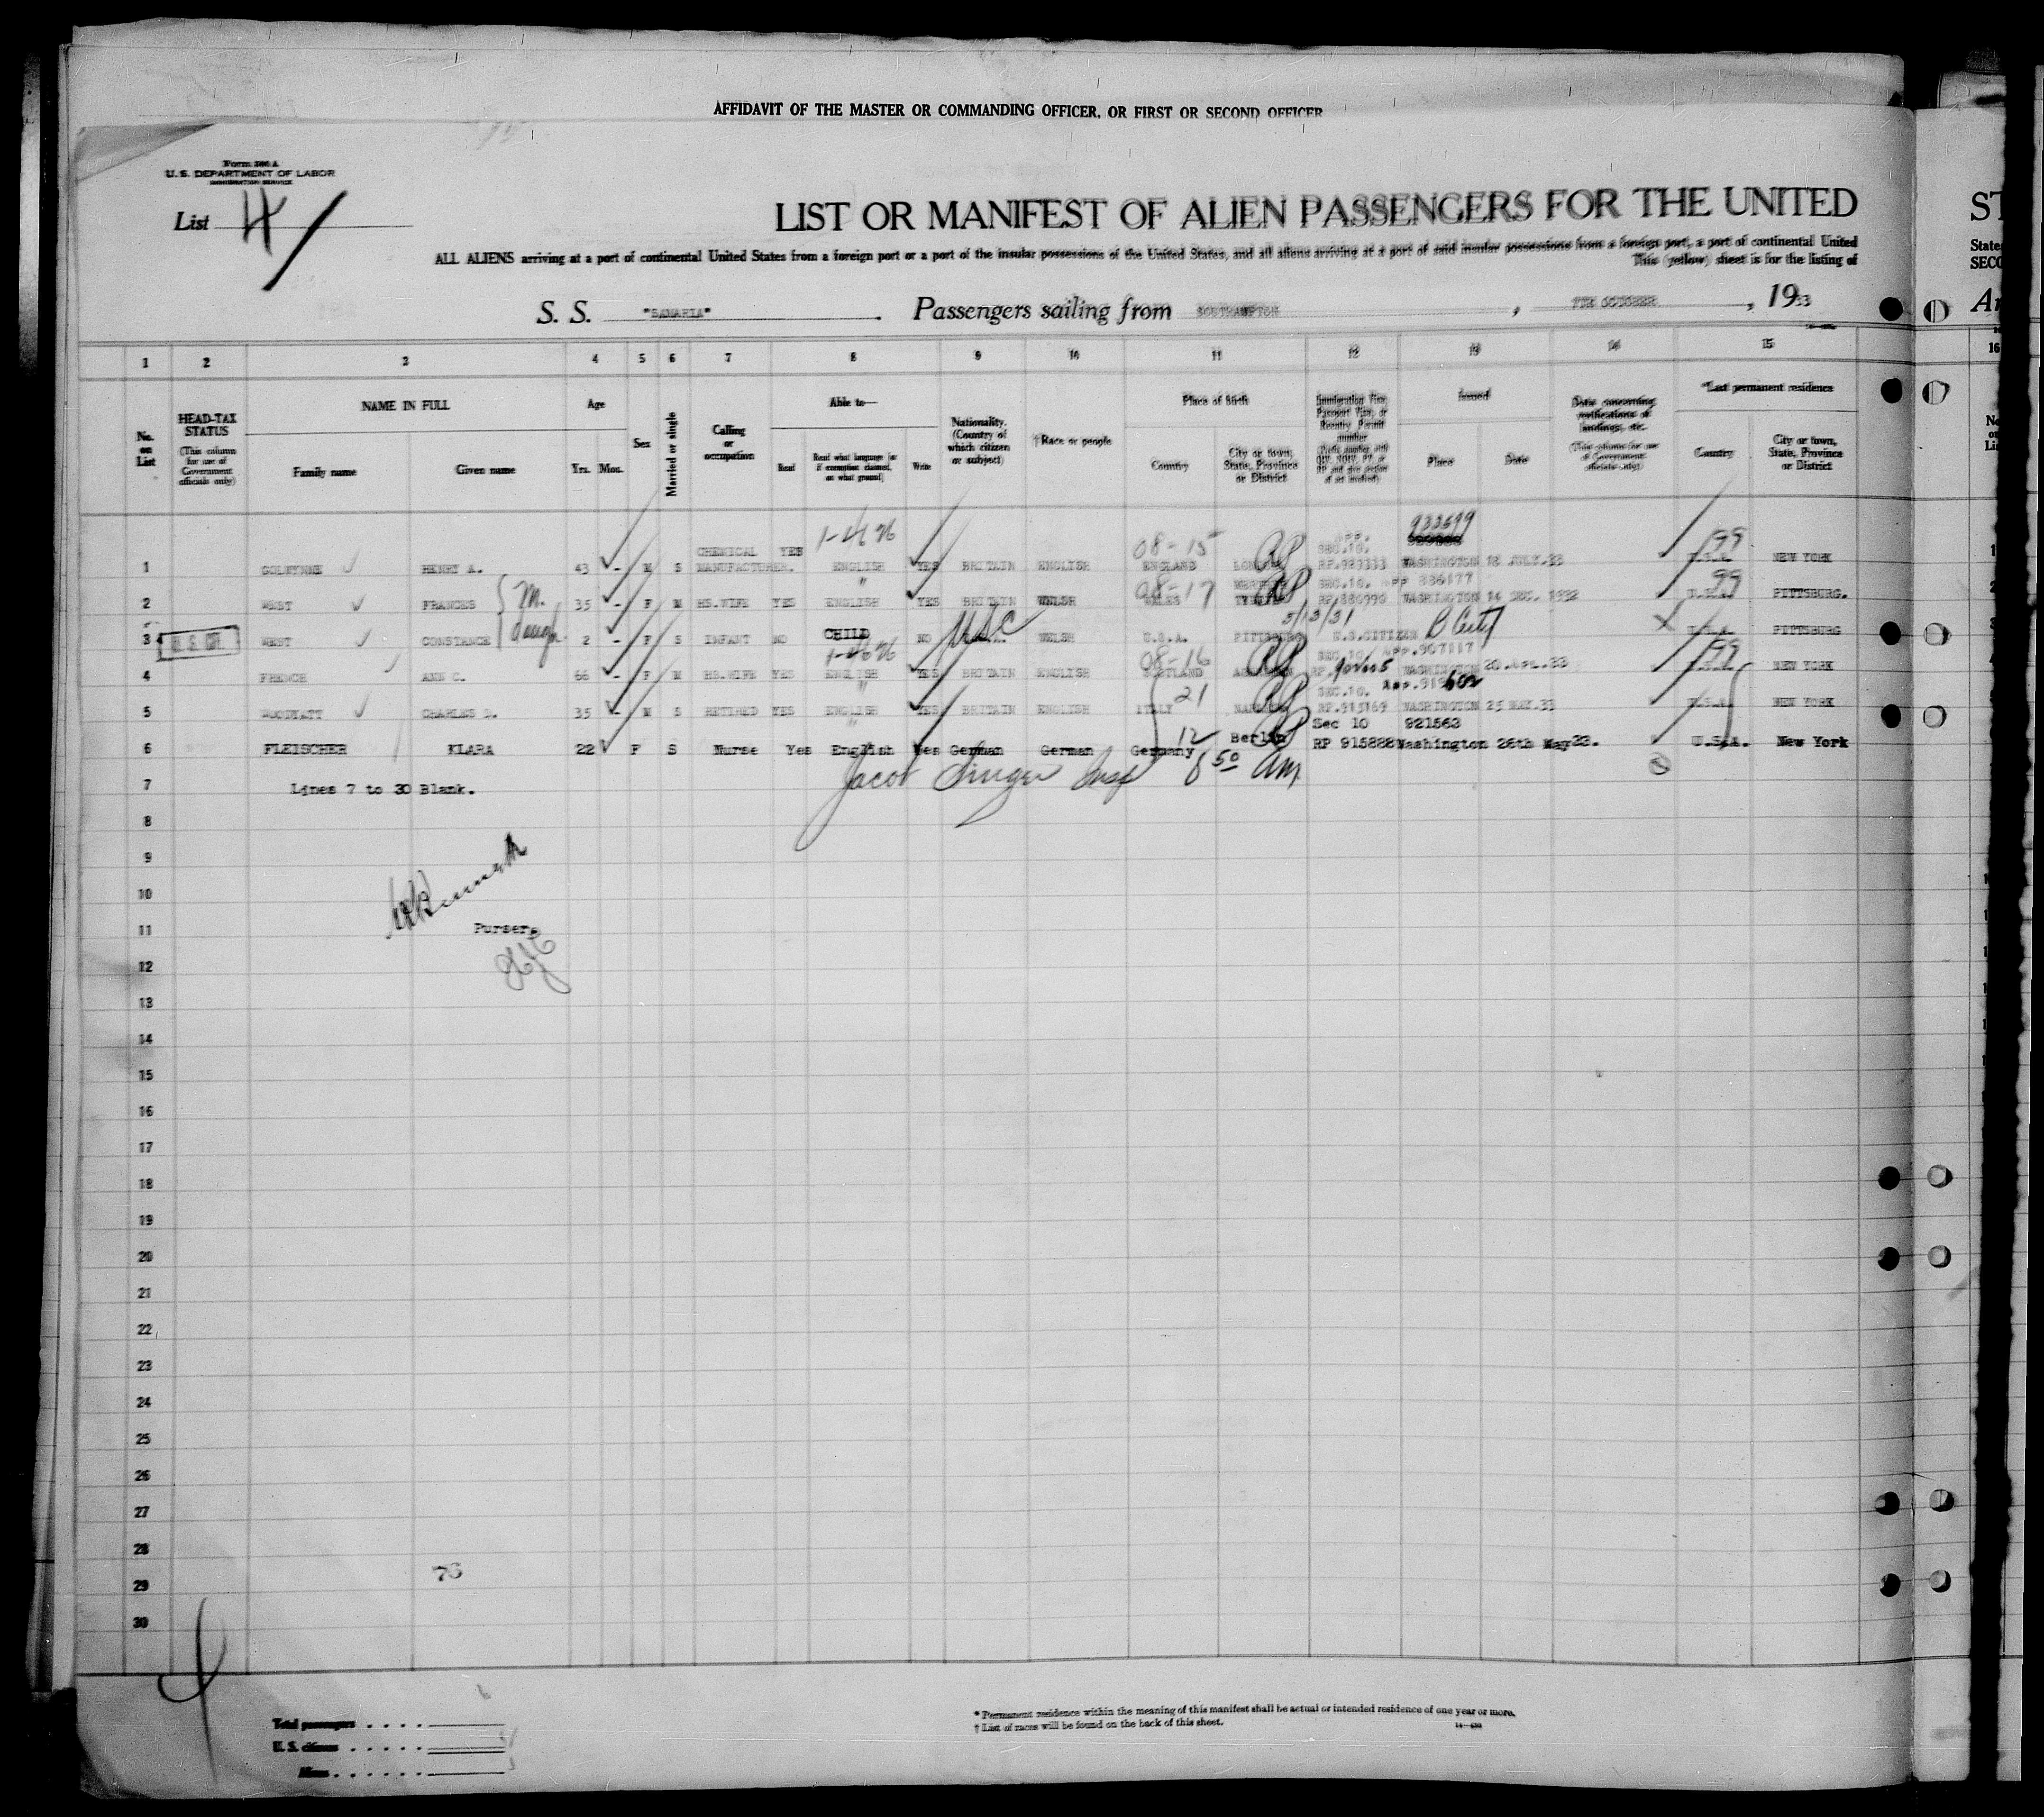 AFFIDAVIT OF THE MASTER OR COMMANDING OFFICER, OR FIRST OR SECOND OFFICER
Form 500 A
U. S. DEPARTMENT OF LABOR
IMMIGRATION SERVICE
List 4
LIST OR MANIFEST OF ALIEN PASSENGERS FOR THE UNITED
ALL ALIENS arriving at a port of continental United States from a foreign port or a port of the insular possessions of the United States, and all aliens arriving at a port of said insular possessions from a foreign port, a port of continental United
This (yellow) sheet is for the listing of
S. S. "SAMARIA" Passengers sailing from SOUTHAMPTON, 7TH OCTOBER, 1933
1 2 3 4 5 6 7 8 9 10 11 12 13 14 15
No. on List
HEAD-TAX STATUS
(This column for use of Government officials only)
NAME IN FULL
Family name Given name
Age
Yrs. Mos.
Sex
Married or single
Calling or occupation
Able to—
Read
Read what language [or if exemption claimed, on what ground]
Write
Nationality. (Country of which citizen or subject)
†Race or people
Place of birth
Country
City or town, State, Province or District
Immigration Visa, Passport Visa, or Reentry Permit number
Issued
Place Date
Data concerning verifications of landings, etc.
(This column for use of Government officials only)
*Last permanent residence
Country
City or town, State, Province or District
933699
1 HENRY A. 43 - M S CHEMICAL MANUFACTURER. YES ENGLISH YES BRITAIN ENGLISH 08-15 ENGLAND LONDON RP SEC.10. WASHINGTON 18 JULY.33 99 U.S.A. NEW YORK
2 WEST FRANCES M. 35 - F M HS.WIFE YES ENGLISH " YES BRITAIN WELSH 08-17 WALES RP SEC.10. RP.880990 App 886177 WASHINGTON 14 DEC. 1932 99 U.S.A. PITTSBURG.
3 U.S.CIT. WEST CONSTANCE daugh 2 - F S INFANT NO CHILD NO USC WELSH U.S.A. PITTSBURG 5/13/31 U.S.CITIZEN B Cert X U.S.A. PITTSBURG
4 FRENCH ANN C. 66 - F M HS.WIFE YES ENGLISH YES BRITAIN ENGLISH 08-16 SCOTLAND RP SEC.10. App.907117 WASHINGTON 20 33 99 U.S.A. NEW YORK
5 WOODYATT CHARLES D. 35 - M S RETIRED YES ENGLISH " YES BRITAIN ENGLISH 21 ITALY NAPLES RP SEC.10. RP.915169 WASHINGTON 25 MAY.33 U.S.A. NEW YORK
6 FLEISCHER KLARA 22 F S Nurse Yes English " Yes German German 12 Germany Berlin RP Sec 10 RP 915888 921563 Washington 26th May 33. U.S.A. New York
7 Lines 7 to 30 Blank.
Jacob Singer Insp 8 50 Am
8
9
10
11 Purser.
12
13
14
15
16
17
18
19
20
21
22
23
24
25
26
27
28
29 76
30
Total passengers . . . .
U. S. citizens . . . . .
Aliens . . . . . .
* Permanent residence within the meaning of this manifest shall be actual or intended residence of one year or more.
† List of races will be found on the back of this sheet.